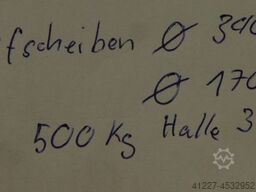 fscheiben Ø 390
Ø 170
500 Kg Halle 3
41227-4532952